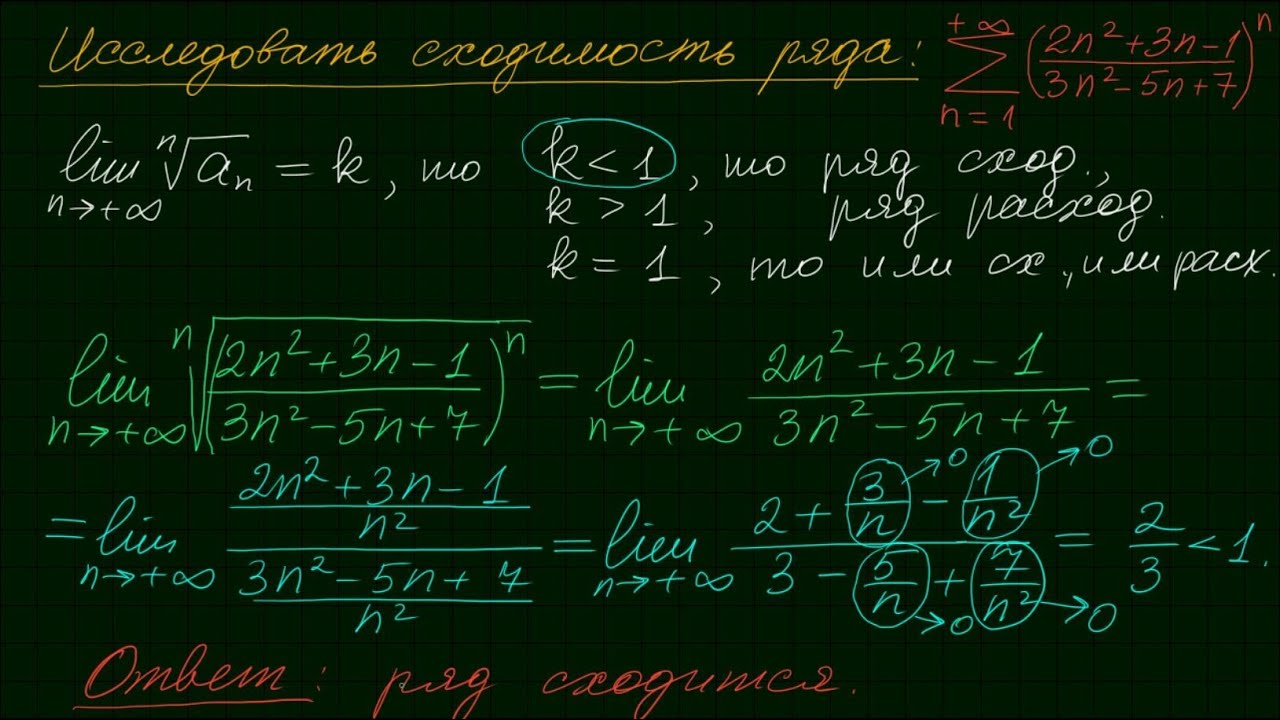 Исследовать сходимость ряда: \sum_{n=1}^{+∞} (\frac{2n²+3n-1}{3n²-5n+7})^n
\lim_{n→+∞} \sqrt[n]{a_n} = k, то k < 1, то ряд сход.,
k > 1, ряд расход.
k = 1, то или сх., или расх.
\lim_{n→+∞} \sqrt[n]{(\frac{2n²+3n-1}{3n²-5n+7})^n} = \lim_{n→+∞} \frac{2n²+3n-1}{3n²-5n+7} =
= \lim_{n→+∞} \frac{\frac{2n²+3n-1}{n²}}{\frac{3n²-5n+7}{n²}} = \lim_{n→+∞} \frac{2+\frac{3}{n}→0-\frac{1}{n²}→0}{3-\frac{5}{n}→0+\frac{7}{n²}→0} = \frac{2}{3} < 1.
Ответ: ряд сходится.